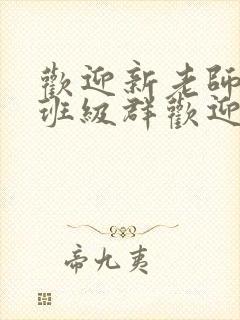 歡迎新老師
班級群歡迎
帝九夷